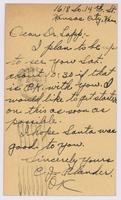 1618 So. 14th St.
Kansas City, Kan
Dear Dr Lapp:-
I plan to be up
to see you Sat.
about 0:30 if that
is O.K. with you. I
would like to get started
on this as soon as
possible.
I hope Santa was
good to you.
Sincerely Yours
C. J.